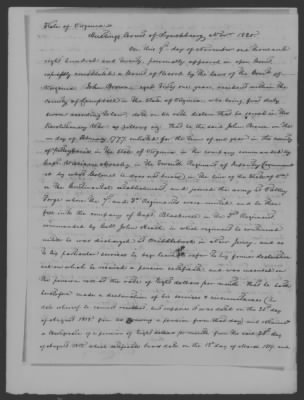 State of Virginia
Hustings Court of Lynchburg Nov. 1820
On this 9th day of November one thousand
eight hundred and twenty, personally appeared in open Court,
expressly constituted a Court of Record by the laws of the State of
Virginia John Brown aged sixty one years, resident within the
County of Campbell in the State of Virginia who being first duly
sworn according to law doth on his oath declare that he served in the
Revolutionary War as follows viz. That he the said John Brown on the
day of February 1777 enlisted for the term of one year in the county
of in the State of Virginia in the company commanded by
Capt. in the Seventh Regiment of Infantry Commanded
by what Colonel he does not know in the line of the State of Va.
on the Continental establishment, and joined the army at Valley
Forge when the 7th and 3rd Regiments were united and he then
fell into the company of Capt. Blackwell in the 3rd Regiment
commanded by Coll. John Heath in which regiment he continued
until he was discharged at Middlebrook in New Jersey, and as
to his particular services he begs leave to refer to his former declaration
on which he received a pension certificate and was inscribed on
the pension roll at the rate of Eight dollars per month. That he hath
heretofore made a declaration of his services & circumstances (the
date whereof he cannot recollect, but supposes it was dated on the 28th day
of August 1818 from his drawing a pension from that day) and obtained
a Certificate of a pension of Eight dollars per month from the said 28th day
of August 1818 which certificate bears date on the 15th day of March 1819 and